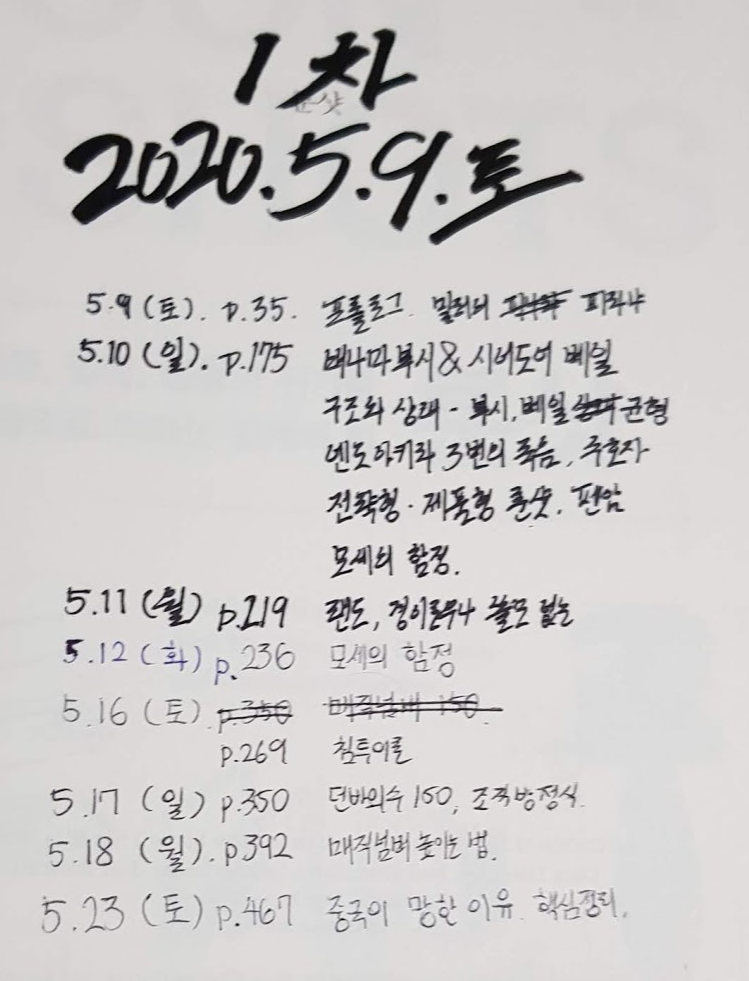 1 차
룬샷
2020. 5. 9. 토
5.9 (토). p.35. 프롤로그. 밀러의 피라냐
5.10 (일). p.175 배나마 부시 & 시어도어 베일
구조와 상태 - 부시, 베일 균형
엔도 아키라 3번의 죽음, 주호자
전략형 · 제품형 룬샷. 팬암
모세의 함정.
5.11 (월) p.219 랜드, 경이로우나 쓸모 없는
5.12 (화) p.236 모세의 함정
5.16 (토) p.350 매직넘버 150
p.269 침투이론
5.17 (일) p.350 던바의수 150, 조직방정식.
5.18 (월). p392 매직넘버 높이는 법.
5.23 (토) p.467 중국이 망한 이유. 핵심정리.